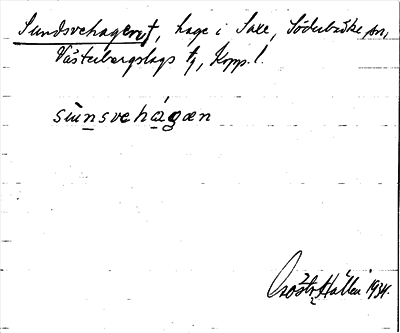 Sundsvehagen†, hage i Saxe, Söderbärke sn,
Västerbergslags tg, Kopp. l.
sùnsvehágæn
Hallén 1934.